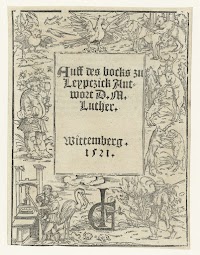 Auff des bocks zu
Leypczick Ant-
wort D. M.
Luther.
Wittemberg.
1521.